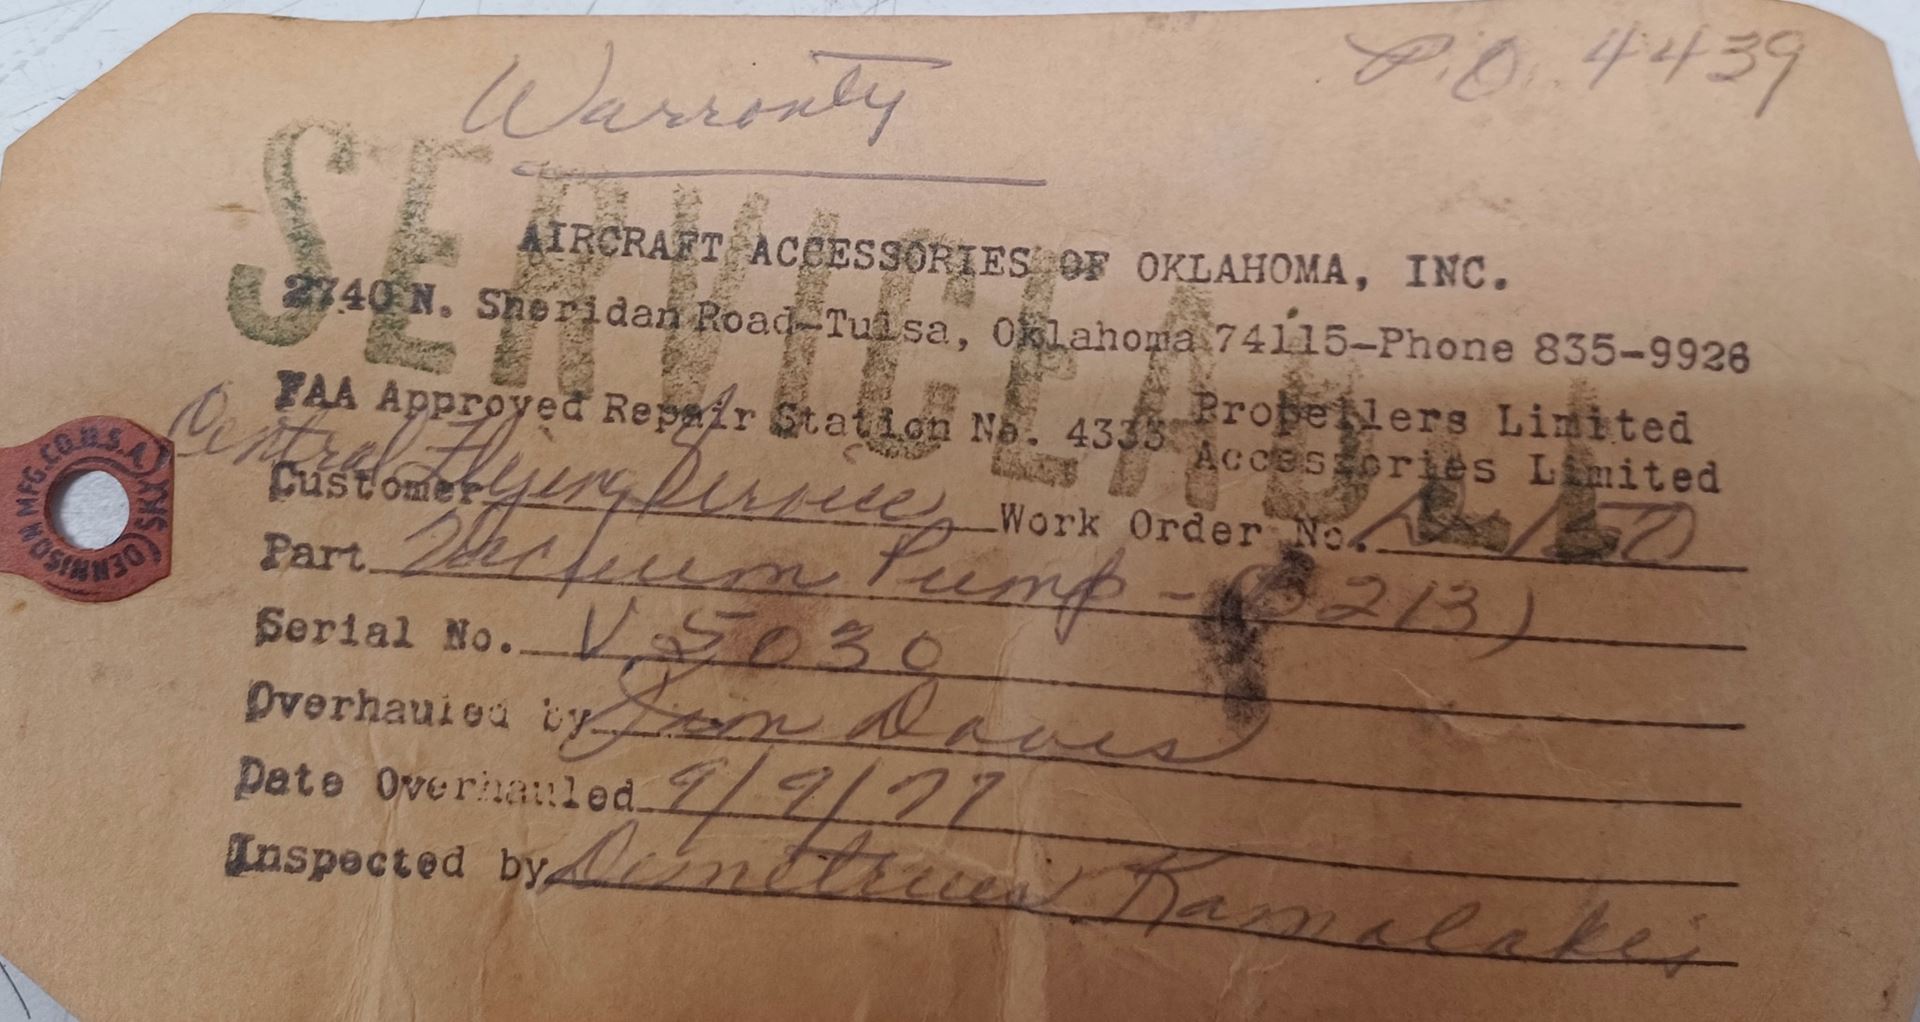 Warranty
P.O. 4439
SERVICEABLE
AIRCRAFT ACCESSORIES OF OKLAHOMA, INC.
2740 N. Sheridan Road-Tulsa, Oklahoma 74115-Phone 835-9926
FAA Approved Repair Station No. 4333 Propellers Limited
Accessories Limited
Customer Central Flying Service Work Order No.
Part Vacuum Pump - (B213)
Serial No. V.5030
Overhauled by Davis
Date Overhauled 9/9/77
Inspected by Kamalakis
DENNISON MFG.CO.U.S.A.